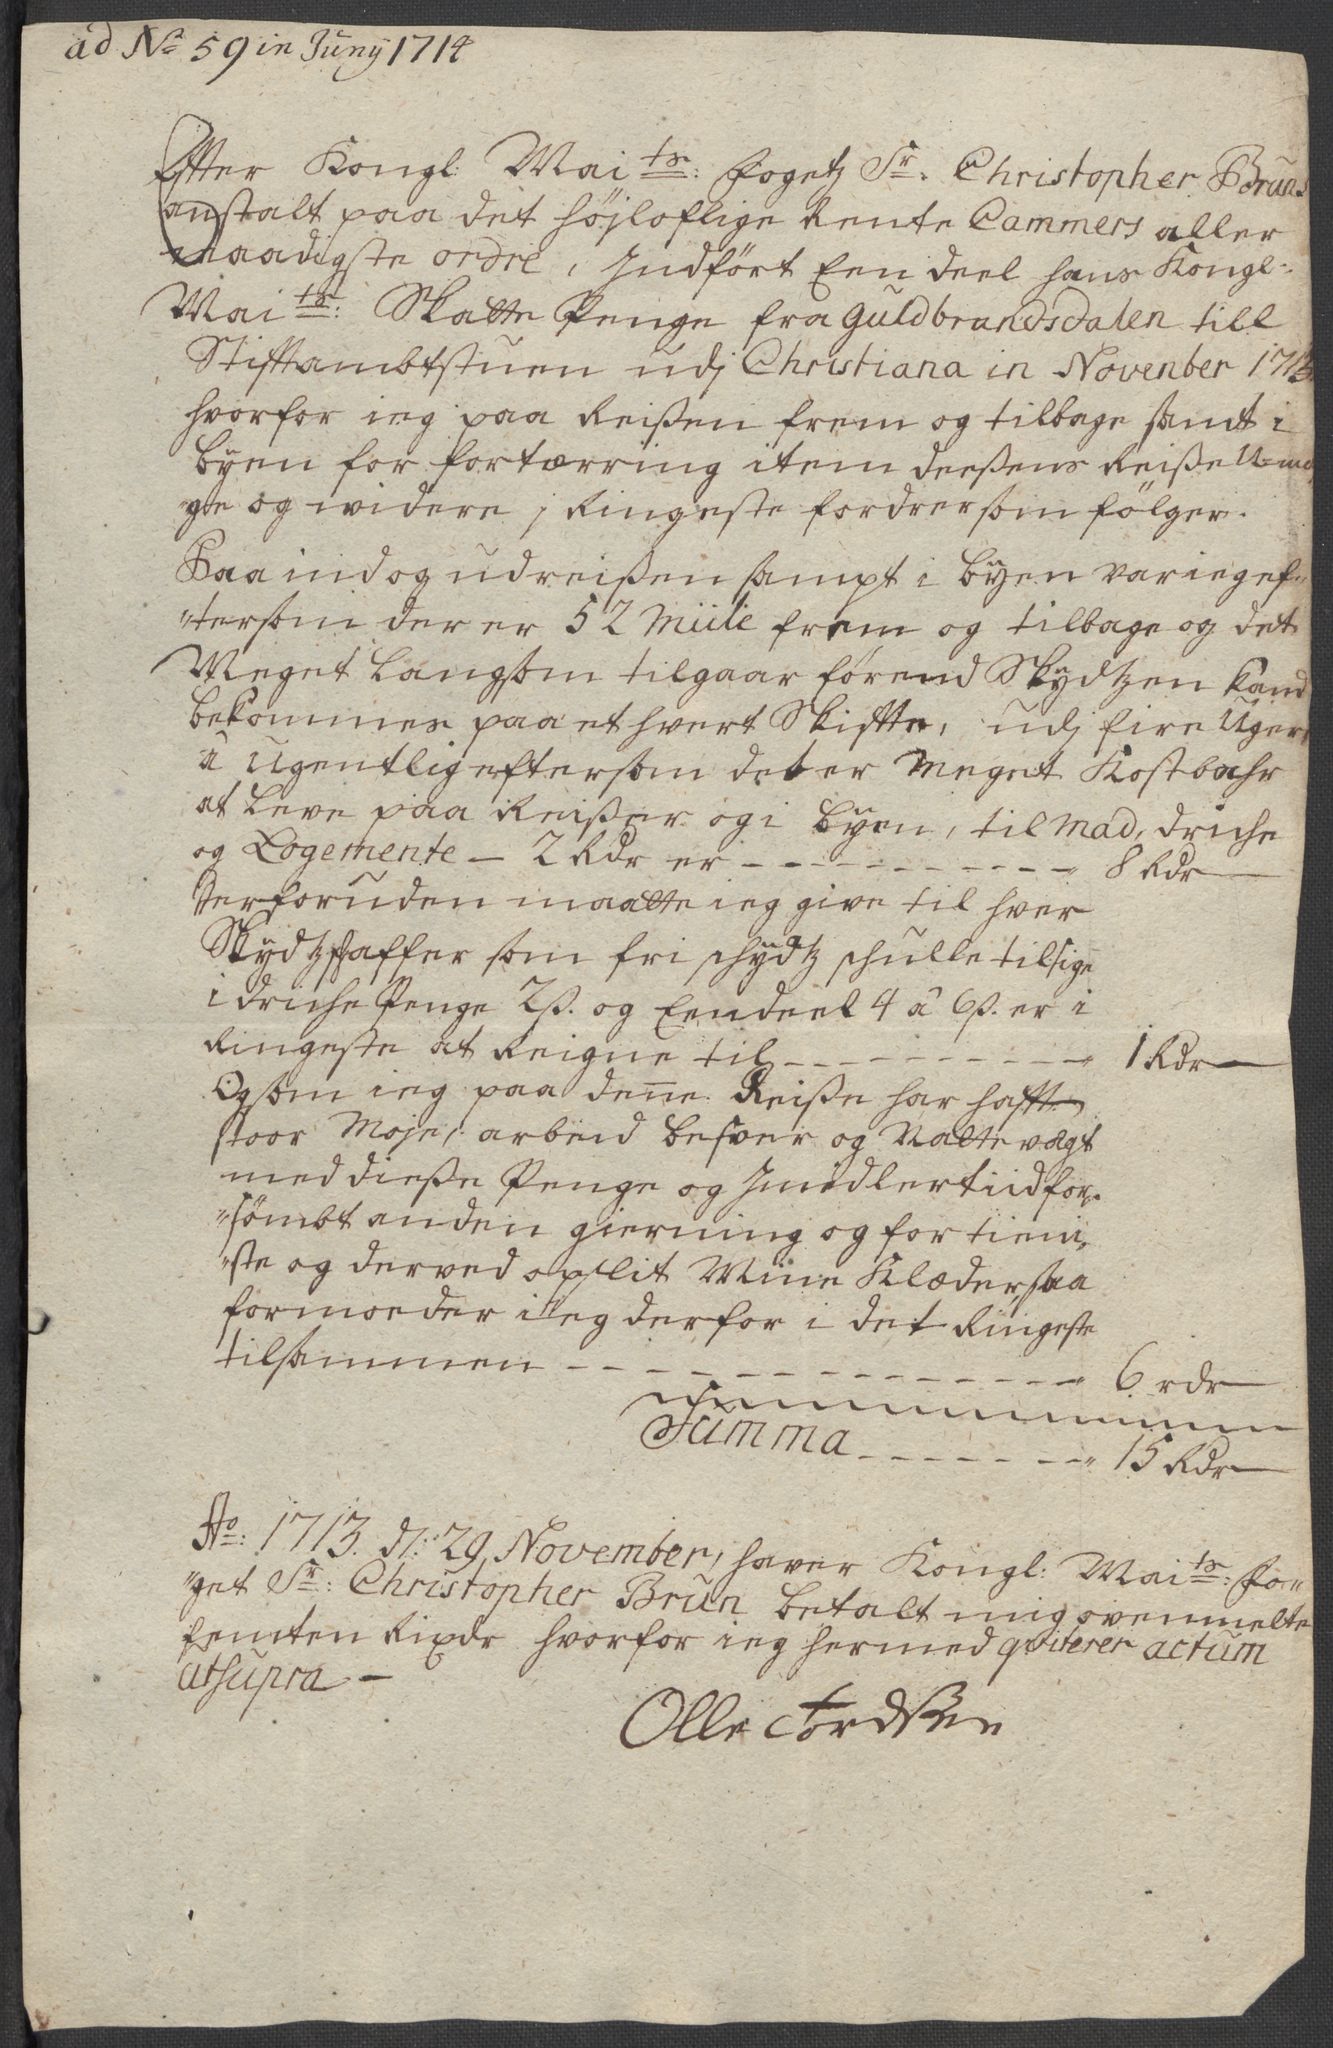 ad No 59 in Junij 1714
Efter Kongl: Maits: fogetz Sr. Christopher Bruns
anstalt paa det høyloflige Rente Cammers aller
naadigste ordre, Indført Een deel hans Kongl:
Maits: Skatte Penge fra Guldbrandsdalen till
Stiftambtstuen udj Christiana in November 1713
hvorfor ieg paa Reißen frem og tilbage samt i
byen for fortærring item deeßens Reiße Uma,,
"ge og widere, Ringeste fordrer som følger.
Paa ind og udreißen sampt i byen var ieg ef,,
"tersom der er 52 Miile frem og tilbage og det
Meget langsom tilgaar førend Skydtzen kand
bekommes paa et hvert Skiffte, udj fire Uger,
â Ugentlig eftersom det er Meget Kostbahr
at leve paa Reißer og i byen, til Mad, driche
og Logemente – 2 Rdr er – – – 8 Rdr
Derforuden maatte ieg give til hver
Skydtzskaffer som fri schydtz schulle tilsige
i driche Penge 2ß. og Eendeel 4 â 6ß. er i
Ringeste at Reigne til – – – 1 Rdr
Og som ieg paa denne Reiße har hafft
stoor Møje, arbeid besver og Natte vægt
med dieße Penge og Imidlertiid for,,
"sømbt anden gierning og fortieni,,
"ste og derved opslit Mine Klæder, saa
formoeder ieg derfor i det Ringeste
tilsammen – – – 6 rdr
Summa – – – 15 Rdr
Ao: 1713. d: 29 November, haver Kongl: Maits: fo,,
"get Sr: Christopher Brun betalt mig ovenmelte
femten Rixdr hvorfor ieg hermed qviterer actum
utsupra –
Olle Tordßen